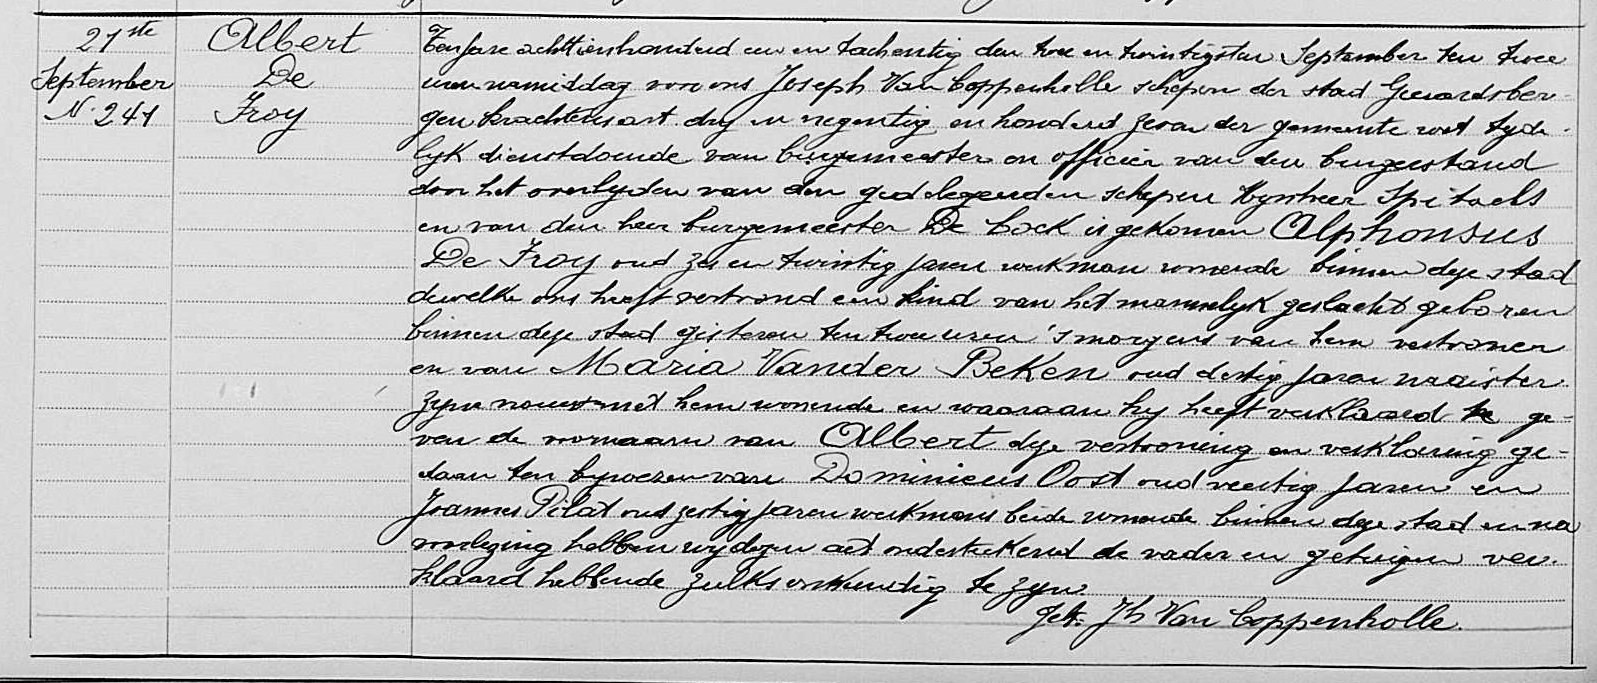 21ste
September
N. 241
Albert
De
Troy
Ten jare achttienhonderd een en tachentig den twee en twintigsten September ten twee
uren namiddag voor ons Joseph Van Coppenholle schepen der stad Geeraardsber-
gen krachtens art. dry en negentig en honderd zeven der gemeente wet tyde-
lyk dienstdoende van burgemeester en officier van den burgerstand
door het overlyden van den gedelegeerden schepen Mynheer Spitaels
en van den heer burgemeester De Cock is gekomen Alphonsus
De Troy oud zes en twintig jaren werkman wonende binnen deze stad
dewelke ons heeft vertoond een kind van het mannelyk geslacht geboren
binnen deze stad gisteren ten twee uren 's morgens van hem vertooner
en van Maria Vander Beken oud dertig jaren naaister
zyne vrouw met hem wonende en waaraan hy heeft verklaard te ge-
ven de voornaam van Albert deze vertooning en verklaring ge-
daan ten bywezen van Dominicus Oost oud veertig jaren en
Joannes Pilat oud zestig jaren werkmans beide wonende binnen deze stad en na
voorlezing hebben wy dezen act onderteekend de vader en getuigen ver-
klaard hebbende zulks onkundig te zyn.
Get. Jh Van Coppenholle.